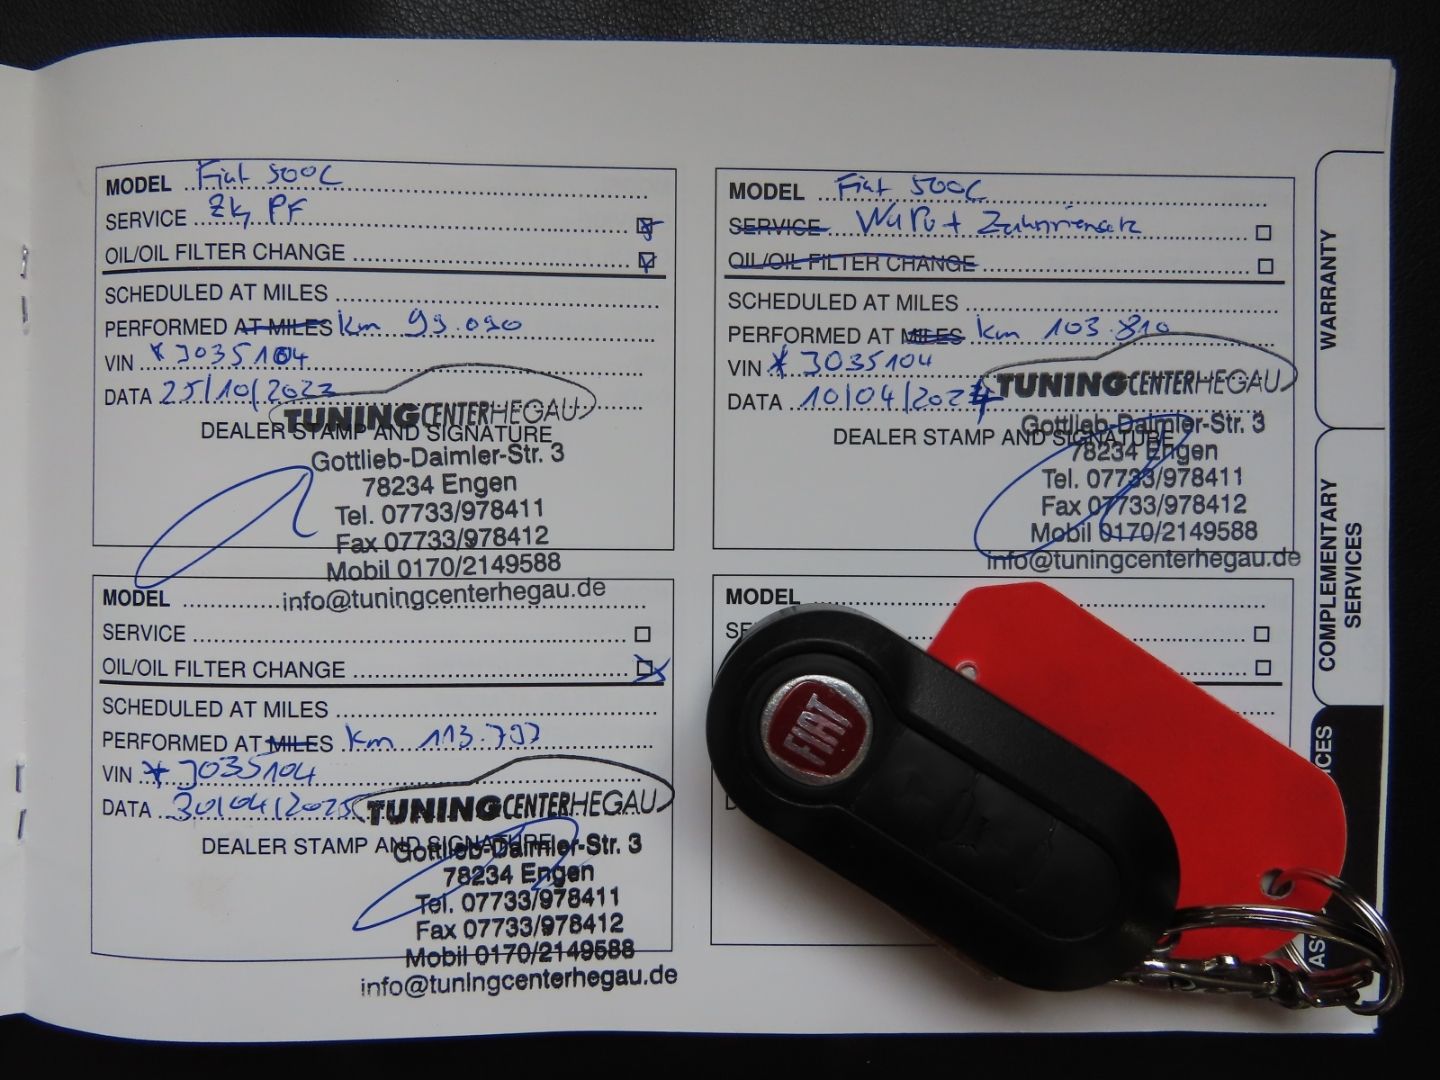 MODEL Fiat 500C
SERVICE Zk, PF
OIL/OIL FILTER CHANGE
SCHEDULED AT MILES
PERFORMED AT MILES km 99.090
VIN * J035104
DATA 25/10/2023
TUNINGCENTERHEGAU
DEALER STAMP AND SIGNATURE
Gottlieb-Daimler-Str. 3
78234 Engen
Tel. 07733/978411
Fax 07733/978412
Mobil 0170/2149588
info@tuningcenterhegau.de
MODEL Fiat 500C
SERVICE WaPu + Zahnriensatz
OIL/OIL FILTER CHANGE
SCHEDULED AT MILES
PERFORMED AT MILES km 103.810
VIN * J035104
DATA 10/04/2024
TUNINGCENTERHEGAU
DEALER STAMP AND SIGNATURE
Gottlieb-Daimler-Str. 3
78234 Engen
Tel. 07733/978411
Fax 07733/978412
Mobil 0170/2149588
info@tuningcenterhegau.de
MODEL
SERVICE
OIL/OIL FILTER CHANGE
SCHEDULED AT MILES
PERFORMED AT MILES km 113.797
VIN * J035104
DATA 30/04/2025
TUNINGCENTERHEGAU
DEALER STAMP AND SIGNATURE
Gottlieb-Daimler-Str. 3
78234 Engen
Tel. 07733/978411
Fax 07733/978412
Mobil 0170/2149588
info@tuningcenterhegau.de
MODEL
FIAT
WARRANTY
COMPLEMENTARY
SERVICES